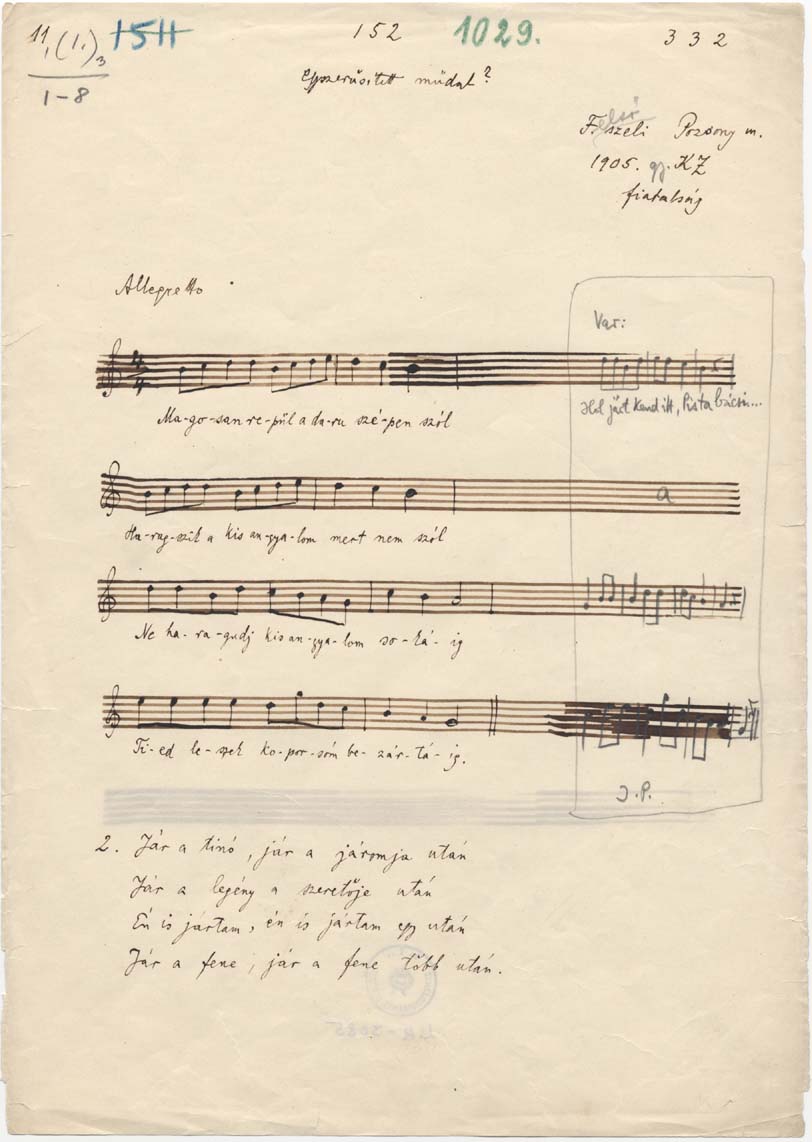 11, (1.)3 1511 152 1029. 332
1-8
egyszerűsített műdal?
Felsőszeli Pozsony m.
1905. gy. KZ
fiatalság
Allegretto
Var:
Ma-go-san re-pül a da-ru szé-pen szól
Hol járt kend itt, Pista bácsi...
a
Ha-rag-szik a kis an-gya-lom mert nem szól
Ne ha-ra-gudj kis an-gya-lom so-ká-ig
Ti-ed le-szek ko-por-sóm be-zár-tá-ig.
J.P.
2. Jár a tinó, jár a járomja után
Jár a legény a szeretője után
Én is jártam, én is jártam egy után
Jár a fene, jár a fene több után.